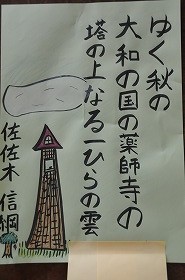 ゆく秋の
大和の国の薬師寺の
塔の上なる一ひらの雲
佐佐木 信綱